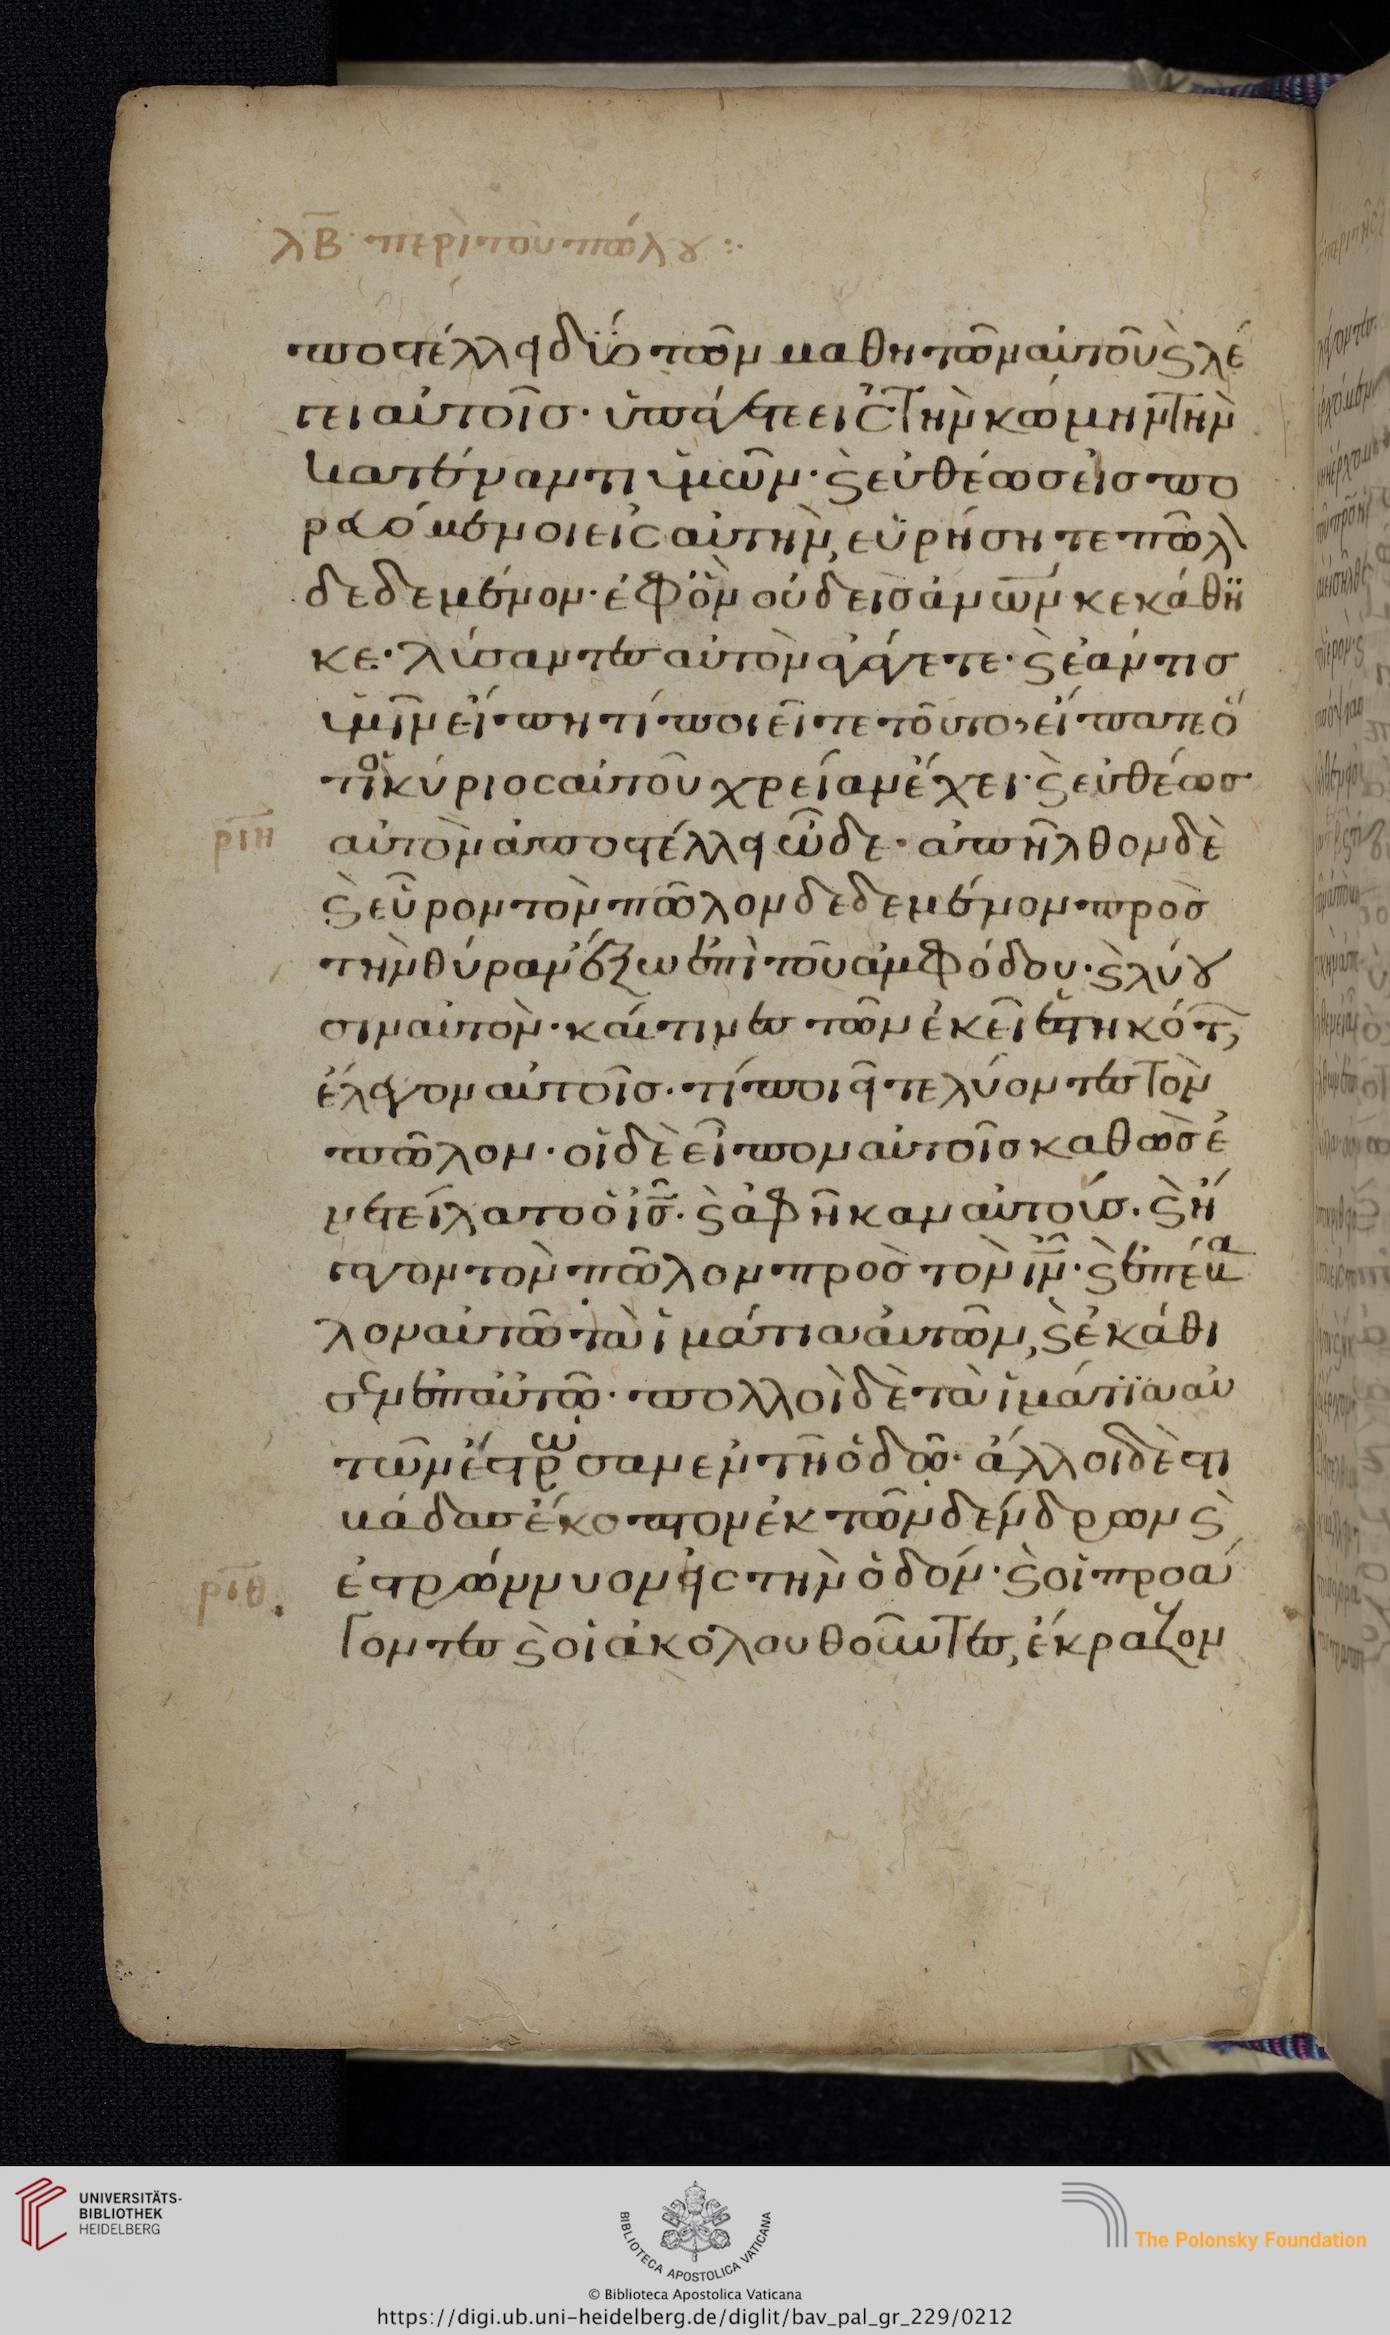 λβ περὶ τοῦ πώλου :·
ποστέλλει δύο τῶν μαθητῶν αὐτοῦ καὶ λέ
γει αὐτοῖσ· ὑπάγετε εἰς τὴν κώμην τὴν
κατέναντι ὑμῶν· καὶ εὐθέωσ εἰσπο
ρευόμενοι εἰς αὐτὴν, εὑρήσητε πῶλ
δεδεμένον· ἐφ ὃν οὐδεὶσ ἀν̅ω̅ν̅ κεκάθϊ
κε· λύσαντεσ αὐτὸν ἀγάγετε· καὶ ἐάν τισ
ὑμῖν εἴπη τί ποιεῖτε τοῦτο, εἴπατε ὅ
τι ὁ κύριος αὐτοῦ χρείαν ἔχει· καὶ εὐθέωσ
ριη αὐτὸν ἀποστέλλει ὧδε· ἀπῆλθον δὲ
καὶ εὗρον τὸν πῶλον δεδεμένον πρὸσ
τὴν θύραν ἔξω ἐπὶ τοῦ ἀμφόδου· καὶ λύου
σιν αὐτὸν· καί τινεσ τῶν ἐκεῖ ἑστηκότ
ἔλεγον αὐτοῖσ· τί ποιεῖτε λύοντεσ τὸν
πῶλον· οἱ δὲ εἶπον αὐτοῖσ καθὼσ ἐ
νετείλατο ὁ ι̅σ̅· καὶ ἀφῆκαν αὐτούσ· καὶ ἤ
γαγον τὸν πῶλον πρὸσ τὸν ι̅ν̅· καὶ ἐπέβα
λον αὐτῶ τὰ ἱμάτια αὐτῶν, καὶ ἐκάθι
σεν ἐπ αὐτῶ· πολλοὶ δὲ τὰ ἱμάτϊα αὐ
τῶν ἔστρωσαν ἐν τῆ ὁδῶ· ἄλλοι δὲ στι
βάδασ ἔκοπτον ἐκ τῶν δένδρων καὶ
ἐστρώννυον εἰς τὴν ὁδόν· καὶ οἱ προά
ριθ γοντεσ καὶ οἱ ἀκολουθοῦντεσ, ἔκραζον
UNIVERSITÄTS-
BIBLIOTHEK
HEIDELBERG
BIBLIOTECA APOSTOLICA VATICANA
The Polonsky Foundation
© Biblioteca Apostolica Vaticana
https://digi.ub.uni-heidelberg.de/diglit/bav_pal_gr_229/0212